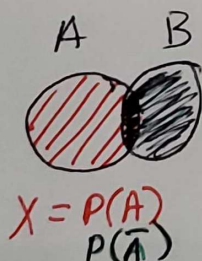 A B
X = P(A)
P(Ā)